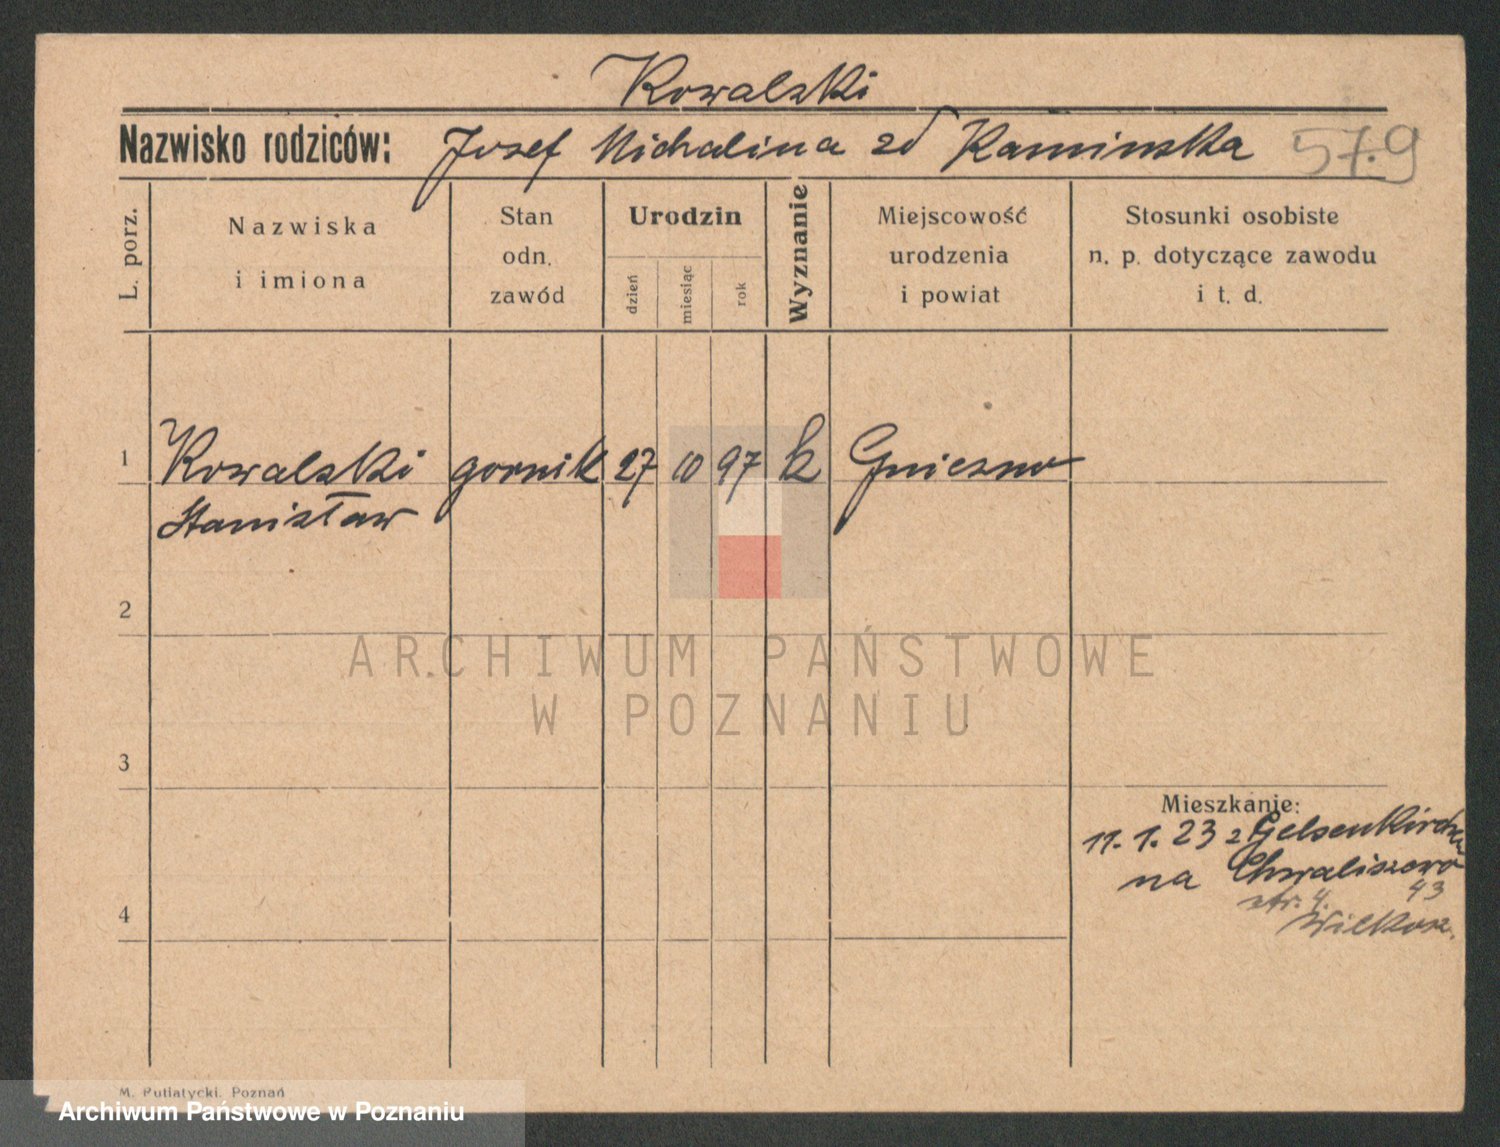 Kowalski
Nazwisko rodziców: Josef Michalina zd Kaminska 579
L. porz.
Nazwiska
i imiona
Stan
odn.
zawód
Urodzin
dzień
miesiąc
rok
Wyznanie
Miejscowość
urodzenia
i powiat
Stosunki osobiste
n. p. dotyczące zawodu
i t. d.
1 Kowalski gornik 27 10 97 k Gniezno
Stanisław
2
ARCHIWUM PAŃSTWOWE
W POZNANIU
3
Mieszkanie:
11. 1. 23 z Gelsenkirchen
na Chwaliszewo
43
4
str. 4.
M. Putiatycki. Poznań
Archiwum Państwowe w Poznaniu